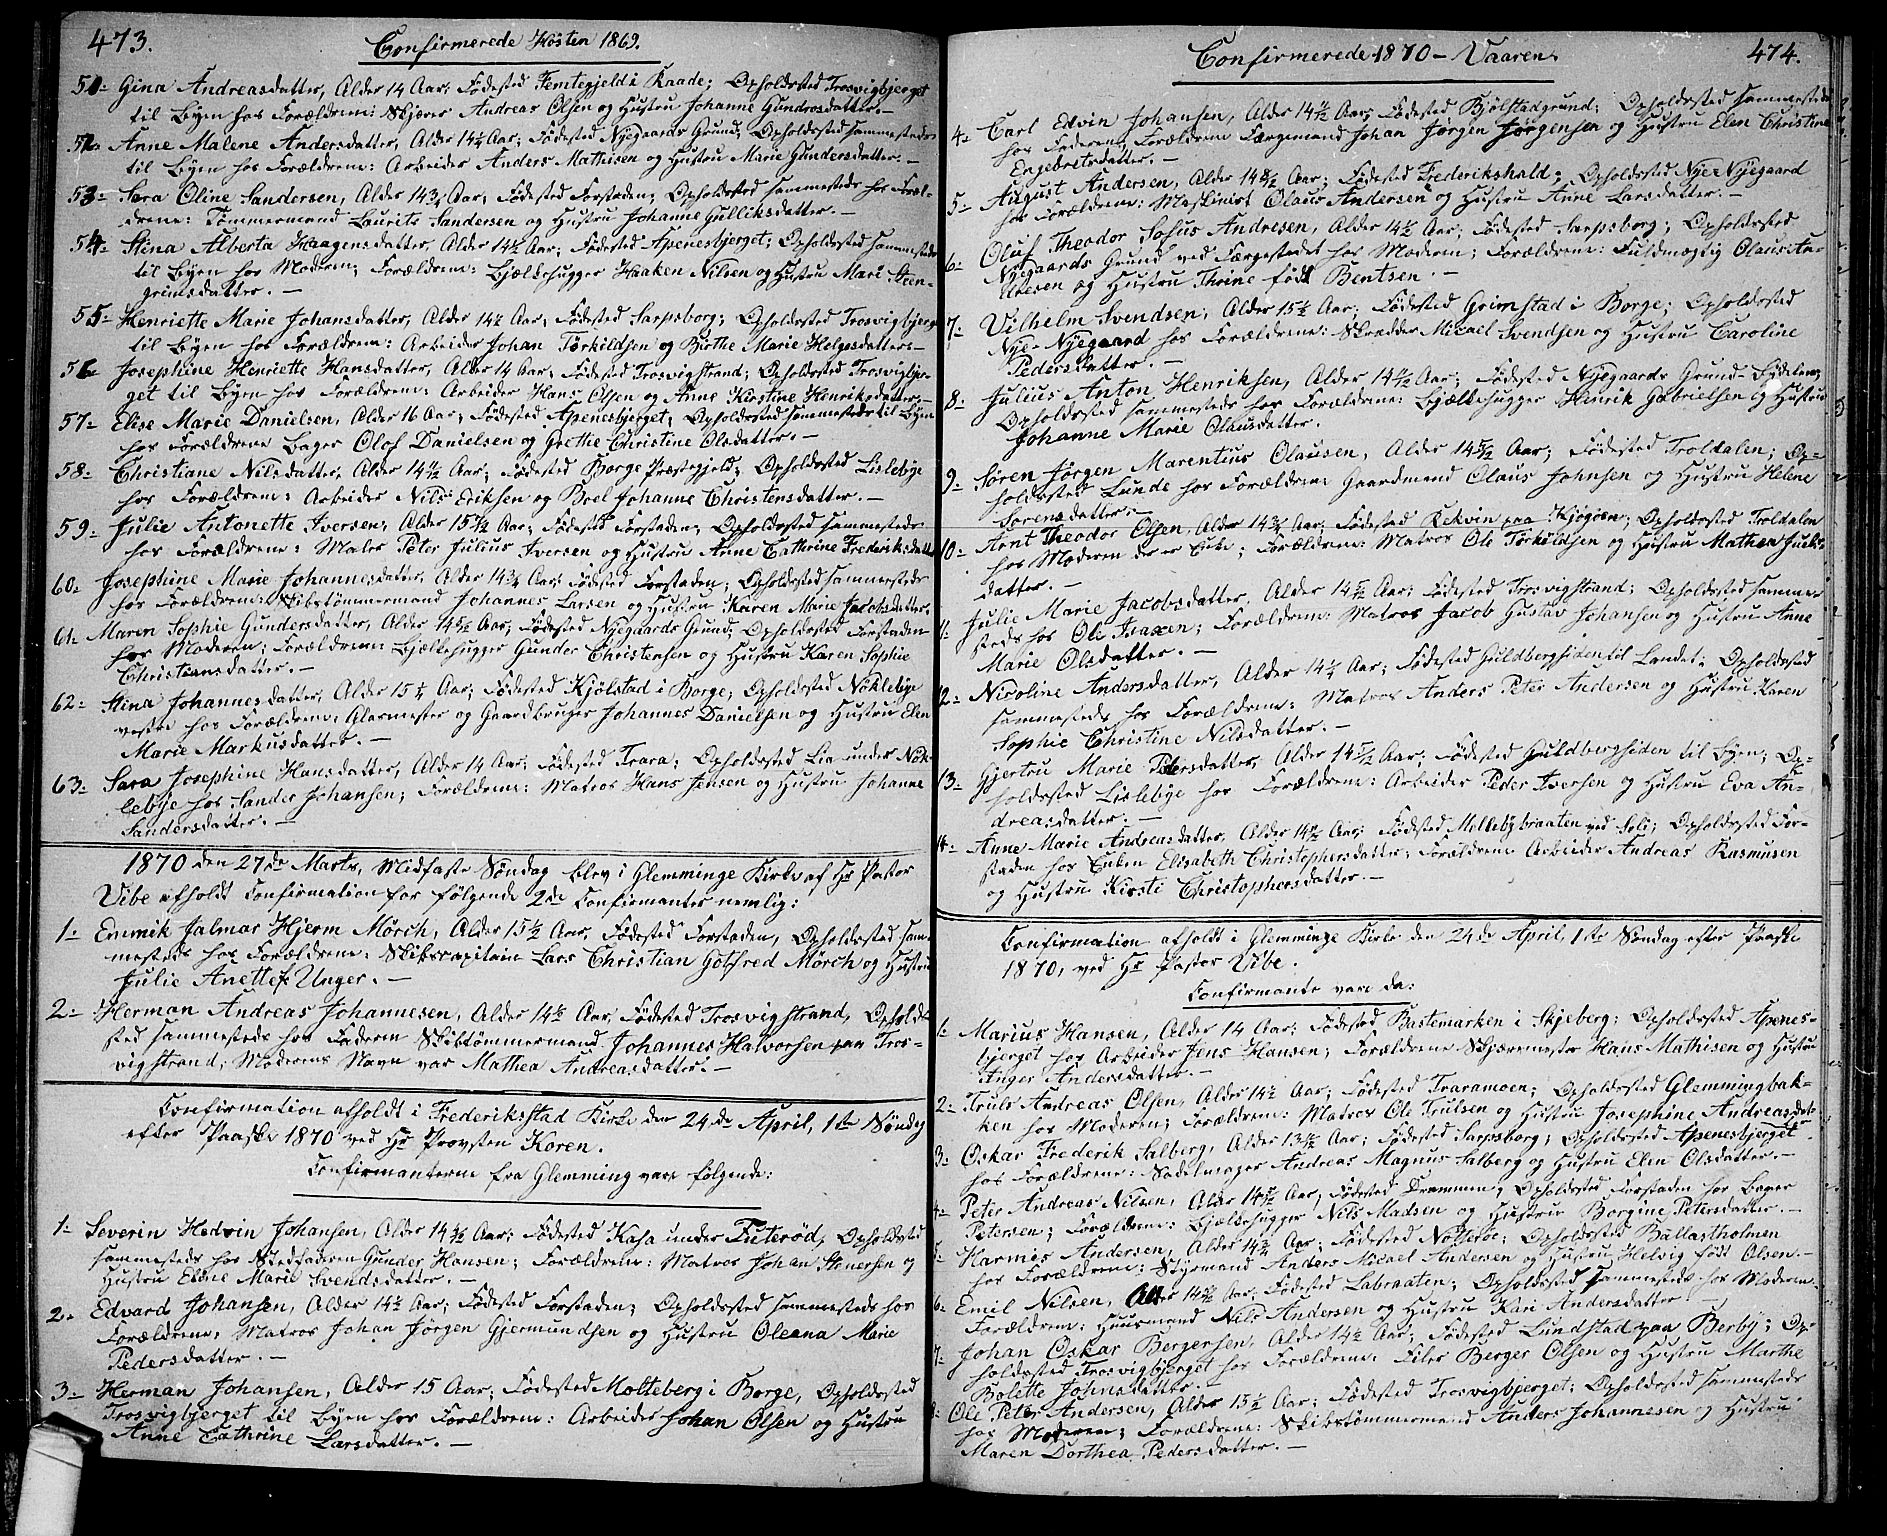 473.
Confirmerede Hösten 1869.
51- Gina Andreasdatter, Alder 14 Aar; Födested Femtegjeld i Raade; Opholdssted Trosvigbjerget
til Byen hos Forældrene: Skjærer Andreas Olsen og Hustru Johanne Gundrosdatter.-
52- Anne Malene Andersdatter, Alder 14½ Aar; Födested Nygaards Grund; Opholdssted sammesteds
til Byen hos Forældrene: Arbeider Anders Mathisen og Hustru Marie Gundersdatter.-
53- Sara Oline Sandersen, Alder 14¾ Aar; Födested Forstaden; Opholdssted sammesteds hos Foræl-
drene: Tømmermand Laurits Sandersen og Hustru Johanne Gulliksdatter.-
54- Stina Alberta Haagensdatter, Alder 14½ Aar; Födested Apenesbjerget; Opholdssted sammesteds
til Byen hos Moderen; Forældrene: Bjælkehugger Haaken Nilsen og Hustru Mari Steen-
grimsdatter.-
55- Henriette Marie Johansdatter, Alder 14½ Aar; Födested Sarpsborg; Opholdssted Trosvigbjerget
til Byen hos Forældrene: Arbeider Johan Törkildsen og Birthe Marie Helgesdatter-
56- Josephine Henriette Hansdatter, Alder 14 Aar; Födested Trosvigstrand; Opholdssted Trosvigbjer-
get til Byen hos Forældrene: Arbeider Hans Olsen og Anne Kirstine Henriksdatter.-
57- Elise Marie Danielsen, Alder 16 Aar; Födested Apenesbjerget; Opholdssted sammesteds til Byen
hos Forældrene Bager Olof Danielsen og Grethe Christine Olsdatter.-
58- Christiane Nilsdatter, Alder 14½ Aar; Födested Borge Præstegjeld; Opholdssted Lislebye
hos Forældrene: Arbeider Nils Eriksen og Boel Johanne Christensdatter.-
59- Julie Antonette Iversen, Alder 15 Aar; Födested Forstaden; Opholdssted sammesteds
hos Forældrene: Maler Peter Julius Iversen og Hustru Anne Cathrine Frederiksdatter
60- Josephine Marie Johannesdatter, Alder 14¾ Aar; Födested Forstaden; Opholdssted sammesteds
hos Forældrene: Skibstömmermand Johannes Larsen og Hustru Karen Marie Jacobsdatter.
61- Maren Sophie Gundersdatter, Alder 14 Aar; Födested Nygaards Grund; Opholdssted Forstaden
hos Moderen; Forældrene: Bjælkehugger Gunder Christensen og Hustru Karen Sophie
Christiansdatter.-
62- Stina Johannesdatter, Alder 15 Aar; Födested Kjölstad i Borge; Opholdssted Nöklebye
vestre hos Forældrene: Glarmester og Gaardbruger Johannes Danielsen og Hustru Elen
Marie Markusdatter.-
63- Sara Josephine Hansdatter, Alder 14 Aar; Födested Trara; Opholdssted Lia under Nök-
lebye hos Sander Johansen; Forældrene: Matros Hans Jensen og Hustru Johanne
Sandersdatter.-
1870 den 27de Marts, Midfaste Søndag blev i Glemminge Kirke af Hr Pastor
Vibe afholdt Confirmation for følgende 2de Confirmanter nemlig:
1- Emmik Jalmar Hjerm Mörch, Alder 15½ Aar, Födested Forstaden, Opholdssted sam-
mesteds hos Forældrene: Skibscapitain Lars Christian Gotfred Mörch og Hustru
Julie Anette f. Unger.-
2- Herman Andreas Johannesen, Alder 14 Aar, Födested Trosvigstrand, Opholds-
sted sammesteds hos Faderen Skibtömmermand Johannes Halvorsen paa Tros-
vigstrand; Moderens Navn var Mathea Andreasdatter.-
Confirmation afholdt i Frederikstad Kirke den 24de April, 1ste Søndag
efter Paaske 1870 ved Hr Provsten Koren.
Confirmanterne fra Glemming vare følgende:
1- Severin Hedvin Johansen, Alder 14 Aar; Födested Kasa under Tuteröd, Opholdssted
sammesteds hos Stedfaderen Gunder Hansen; Forældrene: Matros Johan Stenersen og
Hustru Elene Marie Svendsdatter.-
2- Edvard Johansen, Alder 14½ Aar; Födested Forstaden; Opholdssted sammesteds hos
Forældrene, Matros Johan Jörgen Gjermundsen og Hustru Oleana Marie
Pedersdatter.-
3- Herman Johansen, Alder 15 Aar; Födested Molteberg i Borge, Opholdssted
Trosvigbjerget til Byen hos Forældrene: Arbeider Johan Olsen og Hustru
Anne Cathrine Larsdatter.-
Confirmerede 1870 - Vaaren.
474.
4- Carl Edvin Johansen, Alder 14½ Aar; Födested Bjölstadgrund; Opholdssted sammesteds
hos Faderen; Forældrene Færgemand Johan Jörgen Jörgensen og Hustru Elen Christine
Engebretsdatter.-
5- August Andersen, Alder 14 Aar; Födested Frederikshald; Opholdssted Nye Nygaard
hos Forældrene: Maskinist Olaus Andersen og Hustru Anne Larsdatter.-
6- Oluf Theodor Sofus Andresen, Alder 14½ Aar; Födested Sarpsborg; Opholdssted
Nygaards Grund ved Færgestedet hos Moderen; Forældrene: Fuldmægtig Olaus An-
dresen og Hustru Thrine født Bentsen.-
7- Vilhelm Svendsen, Alder 15½ Aar; Födested Grimstad i Borge; Opholdssted
Nye Nygaard hos Forældrene: Skrædder Micael Svendsen og Hustru Caroline
Pedersdatter.-
8- Julius Anton Henriksen, Alder 14 Aar; Födested Nygaards Grund-Bydelen;
Opholdssted sammesteds hos Forældrene: Bjælkehugger Henrik Gabrielsen og Hustru
Johanne Marie Olausdatter.
9- Sören Jörgen Marentius Olausen, Alder 14 Aar; Födested Troldalen; Op-
holdssted Lunde hos Forældrene Gaardmand Olaus Johnsen og Hustru Helene
Sorensdatter.-
10- Arnt Theodor Olsen, Alder 14 Aar; Födested Rekvin paa Kjøgøen; Opholdssted Troldalen
hos Moderen der er Enke; Forældrene: Matros Ole Törkildsen og Hustru Mathea Juels-
datter.-
11- Julie Marie Jacobsdatter, Alder 14 Aar; Födested Trosvigstrand; Opholdssted samme-
steds hos Ole Isaxen; Forældrene: Matros Jacob Gustav Johansen og Hustru Anne
Marie Olsdatter.-
12- Nicoline Andersdatter, Alder 14 Aar; Födested Guldbergsiden til Landet; Opholdssted
sammesteds hos Forældrene: Matros Anders Peter Andersen og Hustru Karen
Sophie Christine Nilsdatter.-
13- Gjertru Marie Pedersdatter, Alder 14 Aar; Födested Guldbergsiden til Byen; Op-
holdssted Lislebye hos Forældrene: Arbeider Peder Iversen og Hustru Eva An-
dreasdatter.-
14- Anne Marie Andreasdatter, Alder 14 Aar; Födested Mellebybraaten ved Soli; Opholdssted For-
staden hos Enken Elisabeth Christophersdatter; Forældrene Arbeider Andreas Rasmusen
og Hustru Kirsti Christophersdatter.-
Confirmation afholdt i Glemminge Kirke den 24de April, 1ste Søndag efter Paaske
1870, ved Hr Pastor Vibe.
Confirmanter vare da:
1- Marius Hansen, Alder 14 Aar; Födested Bastemarken i Skjeberg; Opholdssted Apenes-
bjerget hos Arbeider Jens Hansen; Forældrene Skjærmester Hans Mathisen og Hustru
Anger Andersdatter.-
2- Truls Andreas Olsen, Alder 14½ Aar; Födested Traramoen; Opholdssted Glemmingbak-
ken hos Moderen; Forældrene: Matros Ole Trulsen og Hustru Josephine Andreasdat-
ter.
3- Oskar Frederik Salberg, Alder 13 Aar; Födested Sarpsborg; Opholdssted Apenesbjerget
hos Forældrene: Sadelmager Andreas Magnus Salberg og Hustru Elen Olsdatter.-
4- Peter Andreas Nilsen, Alder 14 Aar; Födested Drammen; Opholdssted Forstaden hos Bager
Petersen; Forældrene: Bjælkehugger Nils Madsen og Hustru Borgine Petersdatter.-
5- Harmes Andersen, Alder 14 Aar; Födested Nötteröe; Opholdssted Ballastholmen
hos Forældrene: Styrmand Anders Micael Andersen og Hustru Helvig født Olsen.-
6- Emil Nilsen, Alder 14 Aar; Födested Labraaten; Opholdssted sammesteds hos Moderen.
Forældrene: Huusmand Nils Andersen og Hustru Kari Andersdatter.-
7- Johan Oskar Bergersen, Alder 14½ Aar; Födested Lundstad paa Berby; Op-
holdssted Trosvigbjerget hos Forældrene: Filer Berger Olsen og Hustru Marthe
Bolette Johnsdatter.-
8- Ole Peter Andersen, Alder 15½ Aar; Födested Trosvigbjerget; Opholdssted sammesteds
hos Moderen; Forældrene: Skibstömmermand Anders Johannesen og Hustru
Maren Dorthea Pedersdatter.-